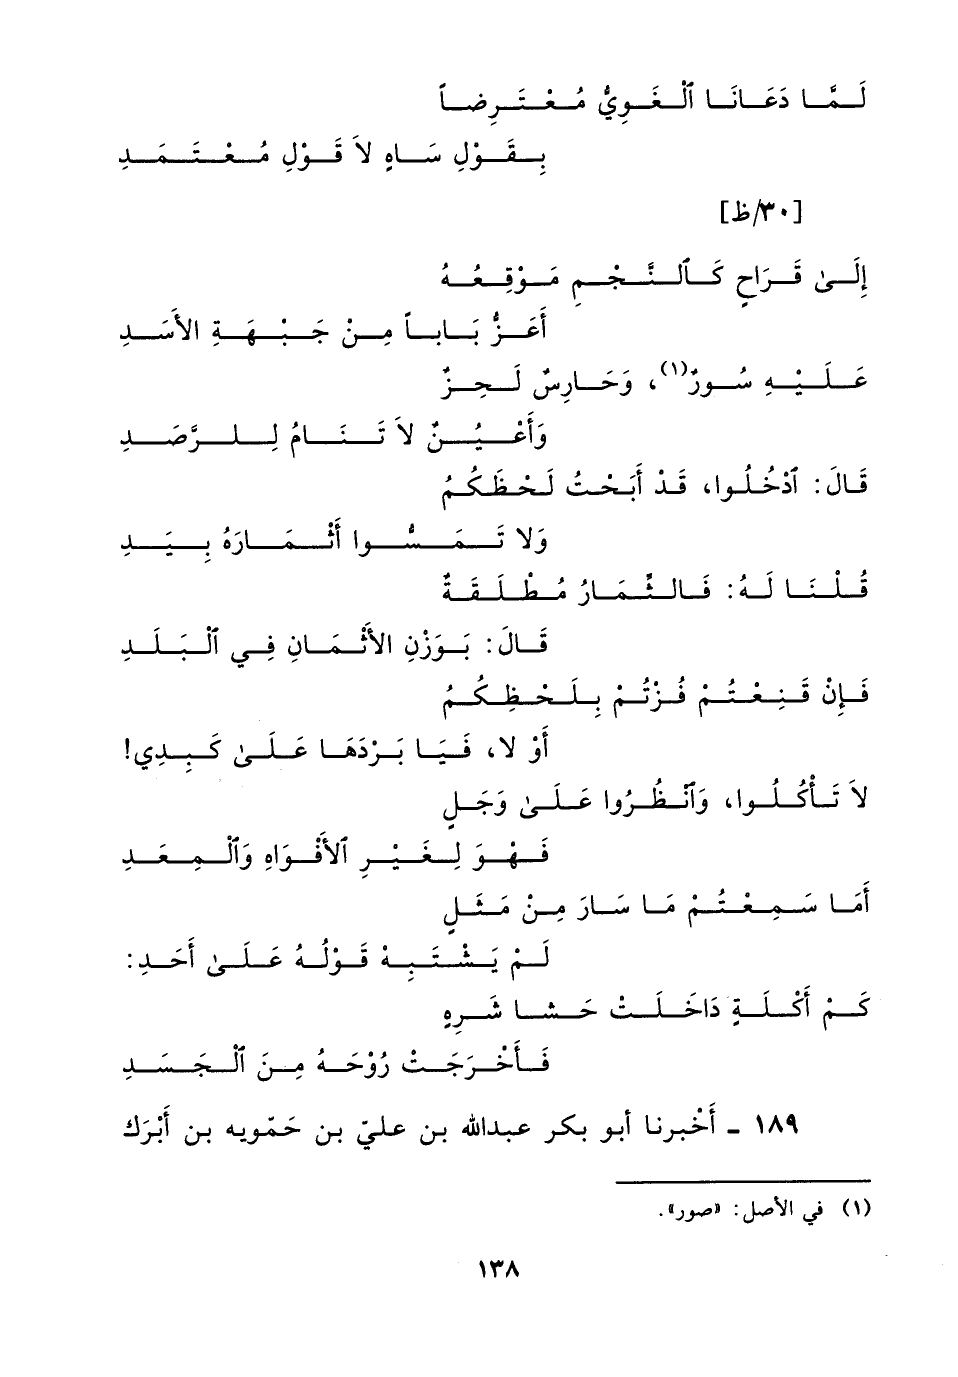 لَمَّا دَعَانَا ٱلْغَوِيُّ مُعْتَرِضاً
بِقَوْلِ سَاهٍ لاَ قَوْلِ مُعْتَمَدِ
[٣٠/ظ]
إِلَىٰ قَرَاحٍ كَٱلنَّجْمِ مَوْقِعُهُ
أَعَزُّ بَاباً مِنْ جَبْهَةِ الأَسَدِ
عَلَيْهِ سُورٌ(١)، وَحَارِسٌ لَحِزٌ
وَأَعْيُنٌ لاَ تَنَامُ لِلرَّصَدِ
قَالَ: ٱدْخُلُوا، قَدْ أَبَحْتُ لَحْظَكُمُ
وَلا تَمَسُّوا أَثْمَارَهُ بِيَدِ
قُلْنَا لَهُ: فَالثِّمَارُ مُطْلَقَةٌ
قَالَ: بَوَزْنِ الأَثْمَانِ فِي ٱلْبَلَدِ
فَإِنْ قَنِعْتُمْ فُزْتُمْ بِلَحْظِكُمُ
أَوْ لا، فَيَا بَرْدَهَا عَلَىٰ كَبِدِي!
لاَ تَأْكُلُوا، وَٱنْظُرُوا عَلَىٰ وَجَلٍ
فَهْوَ لِغَيْرِ ٱلأَفْوَاهِ وَٱلْمِعَدِ
أَمَا سَمِعْتُمْ مَا سَارَ مِنْ مَثَلٍ
لَمْ يَشْتَبِهْ قَوْلُهُ عَلَىٰ أَحَدِ:
كَمْ أَكْلَةٍ دَاخَلَتْ حَشا شَرِهٍ
فَأَخْرَجَتْ رُوْحَهُ مِنَ ٱلْجَسَدِ
١٨٩ ـ أَخْبرنا أبو بكر عبدالله بن عليّ بن حَمّويه بن أَبْرَك
(١) في الأصل: «صور».
١٣٨